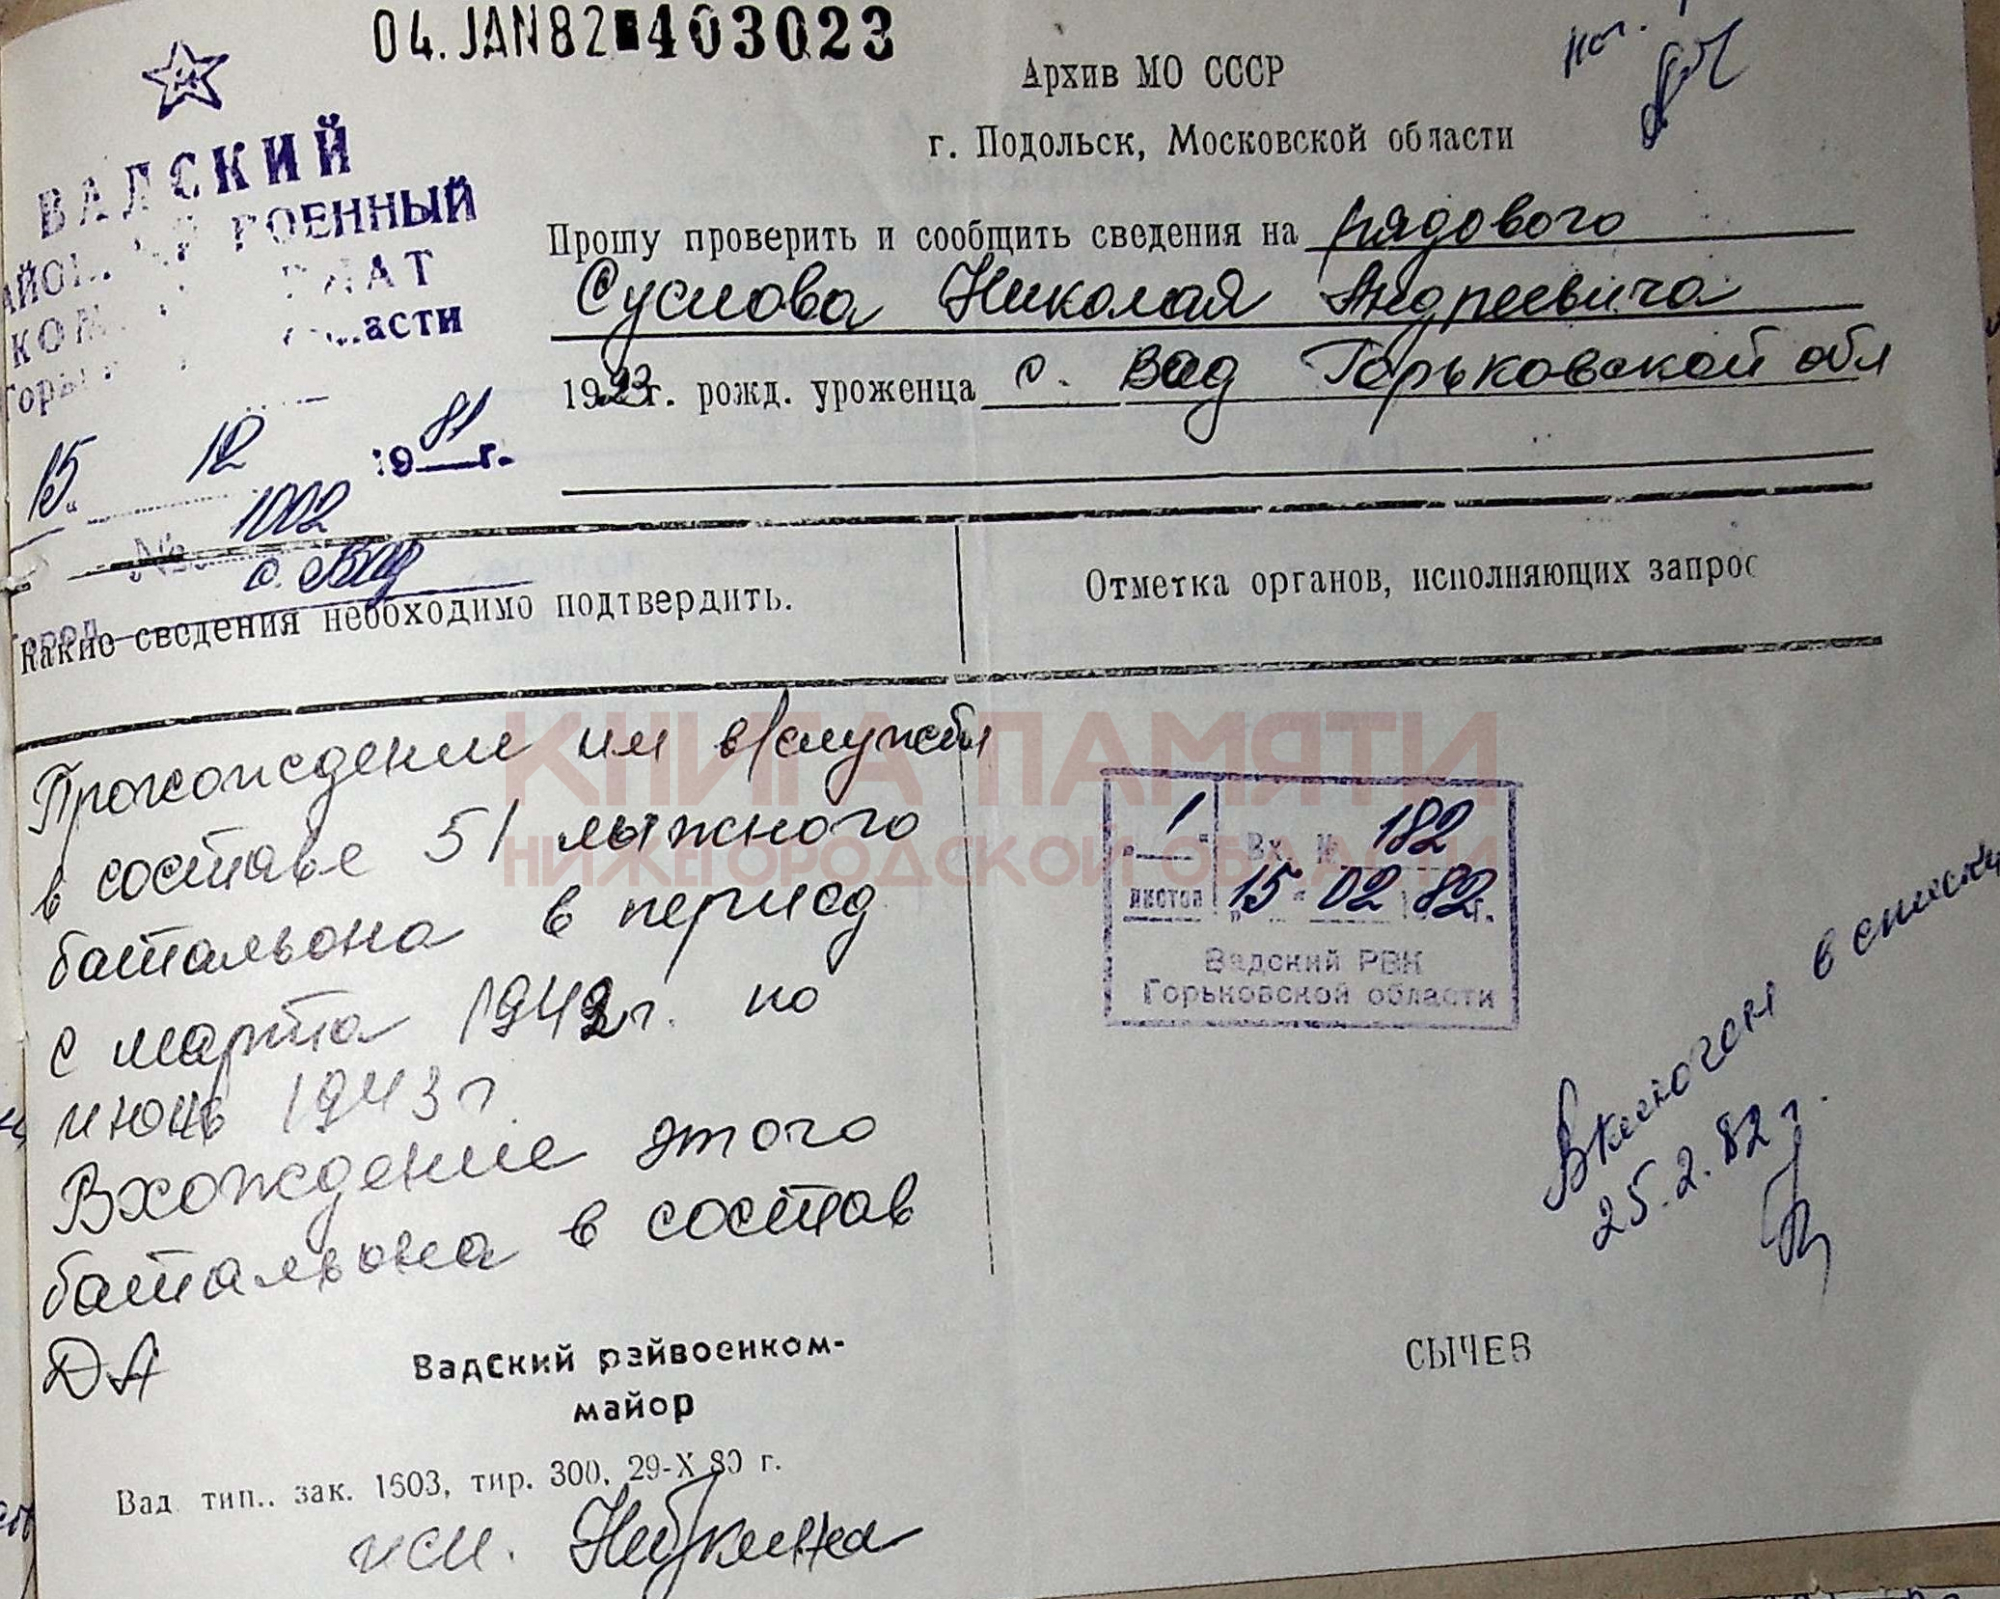 04. JAN 82 403023
Архив МО СССР
г. Подольск, Московской области
ВАДСКИЙ
ВОЕННЫЙ
области
15 12 1981 г.
№ 1002
с. Вад
город
Прошу проверить и сообщить сведения на рядового
Суслова Николая Андреевича
1923 г. рожд. уроженца с. Вад Горьковской обл
Какие сведения необходимо подтвердить.
Отметка органов, исполняющих запрос
Прохождение им в/службы
в составе 51 лыжного
батальона в период
с марта 1942 г. по
июнь 1943 г.
Вхождение этого
батальона в состав
ДА
КНИГА ПАМЯТИ
НИЖЕГОРОДСКОЙ ОБЛАСТИ
„ 1 " Вх. № 182
листов „15" 02 1982 г.
Вадский РВК
Горьковской области
Включен в списки
25.2.82 г.
Вадский райвоенком-
майор
СЫЧЕВ
Вад. тип., зак. 1503, тир. 300, 29-X 80 г.
исп.